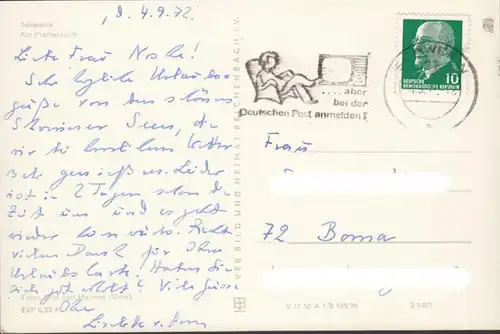 Schwerin
Am Pfaffenteich
, d. 4.9.72.
Liebe Frau Noske!
Sehr herzliche Urlaubs-
grüße von den schönen
Schweriner Seen, die
wir bei herrlichem Wetter
sehr genießen. Leider
ist in 2 Tagen schon die
Zeit um und es geht
wieder heimwärts. Recht
vielen Dank für Ihre
Urlaubskarte. Haben Sie
sich gut erholt? Viele Grüße
Ihre
Liselotte
VEB BILD UND HEIMAT REICHENBACH I. V.
.... aber
bei der
Deutschen Post anmelden!
SCHWERIN
10
DEUTSCHE
DEMOKRATISCHE REPUBLIK
Frau
72 Borna
V 11 50 A 1 B